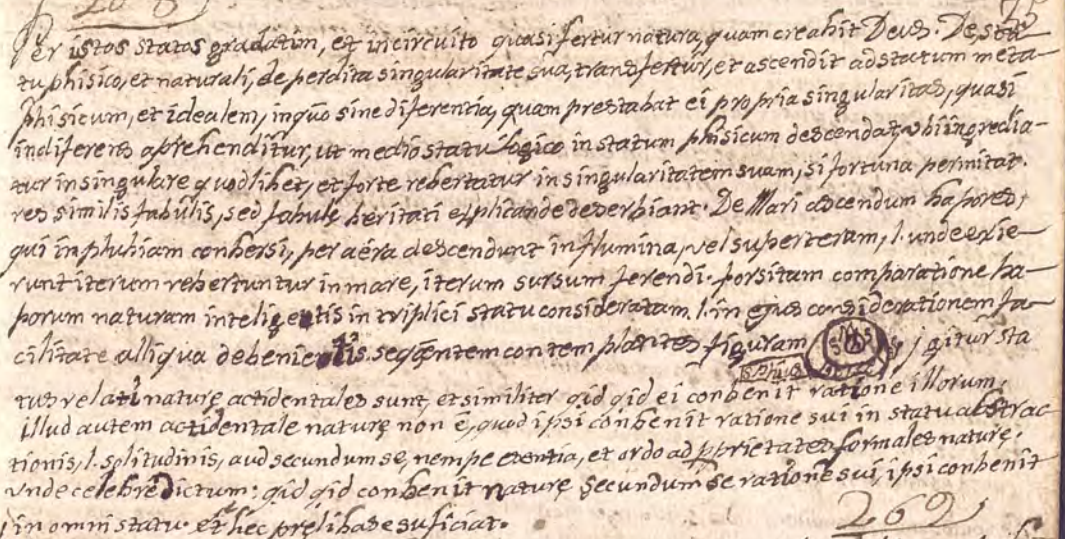 268
75
Per istos status gradatim, et in circuito quasi fertur natura, quam creabit Deus. De sta-
tu phisico, et naturali, deperdita singularitate sua, transfertur, et ascendit ad statum meta-
phisicum, et idealem, in quo sine diferentia, quam prestabat ei propria singularitas, quasi
indiferens aprehenditur, ut medio statu logico in statum phisicum descendat, ubi ingredia-
tur in singulare quodlibet, et forte rebertatur in singularitatem suam, si fortuna permitat.
res similis fabulis, sed fabulę beritati explicande deserbiant. De Mari ascendum bapores,
qui in plubiam conbersi, per aera descendunt in flumina, vel super teram, l. unde exie-
runt iterum rebertuntur in mare, iterum sursum ferendi. forsitam comparatione ba-
porum naturam inteligentis in triplici statu consideratam, l. in ejus considerationem fa-
cilitate alliqua debenientis. seqentem contemplantes figuram
Phius
igitur sta
tus relati naturę actidentales sunt, et similiter qid qid ei conbenit ratione illorum.
illud autem actidentale naturę non ē, quod ipsi conbenit ratione sui in statu abstrac
tionis, l. solitudinis, aud secundum se, nempe esentia, et ordo ad pprietates formales naturę.
vnde celebre dictum: qid qid conbenit naturę secundum se ratione sui, ipsi conbenit
in omni statu. et hec prelibase suficiat.
269